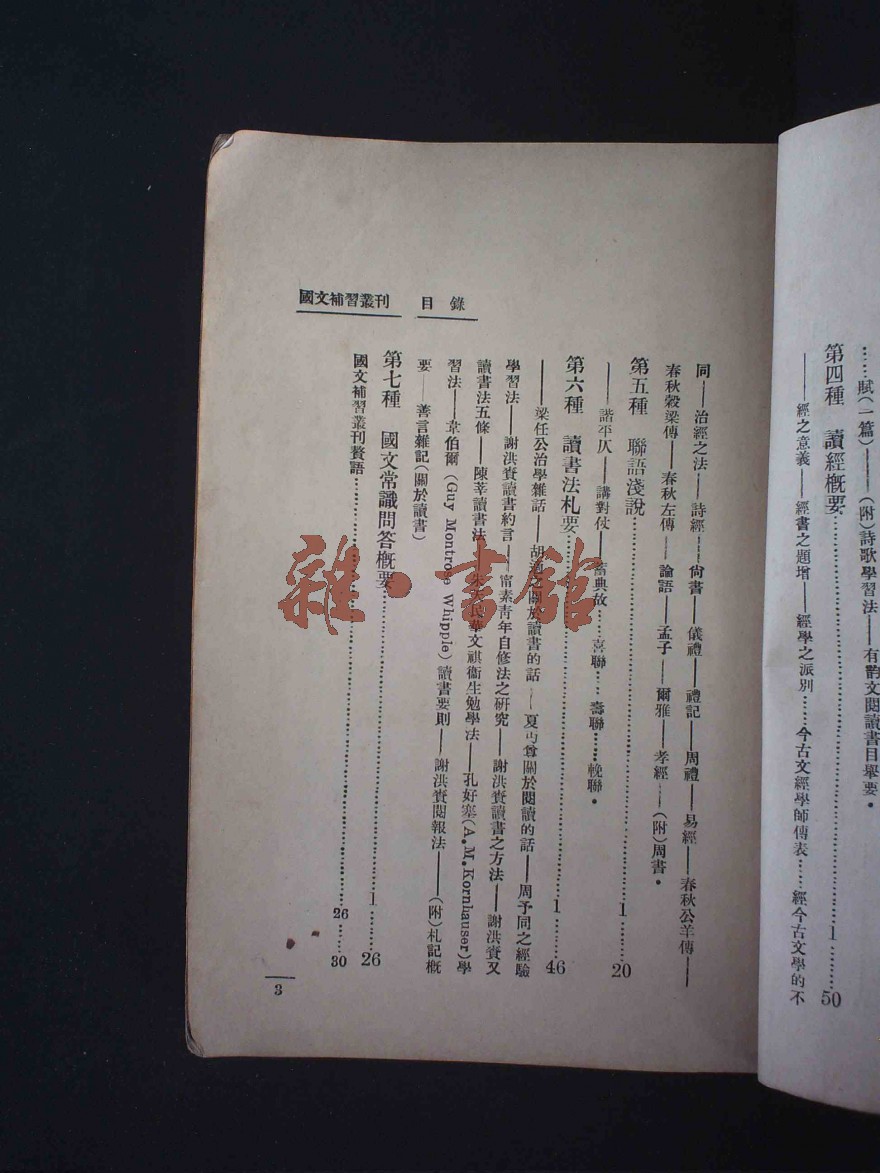 ……賦(一篇)——(附)詩歌學習法——有韵文閱讀書目舉要．
第四種　讀經概要……1……50
——經之意義——經書之題增——經學之派別……今古文經學師傳表……經今古文學的不
國文補習叢刊　目錄
同——治經之法——詩經——尙書——儀禮——禮記——周禮——易經——春秋公羊傳——
春秋穀梁傳——春秋左傳——論語——孟子——爾雅——孝經——(附)周書．
第五種　聯語淺說……1……20
——諧平仄——講對仗——富典故……喜聯……壽聯……輓聯．
第六種　讀書法札要……1……46
——梁任公治學雜話——胡適之關於讀書的話——夏丏尊關於閱讀的話——周予同之經驗
學習法——謝洪賚讀書約言——甯素靑年自修法之研究——謝洪賚讀書之方法——謝洪賚又
讀書法五條——陳莘讀書法——朱 民華文祺衞生勉學法——孔好塞(A.M.Kornhauser)學
習法——韋伯爾(Guy Montrose Whipple)讀書要則——謝洪賚閱報法——(附)札記槪
要——善言雜記(關於讀書)
第七種　國文常識問答槪要……1……26
國文補習叢刊贅語……26……30
3
雜·書館